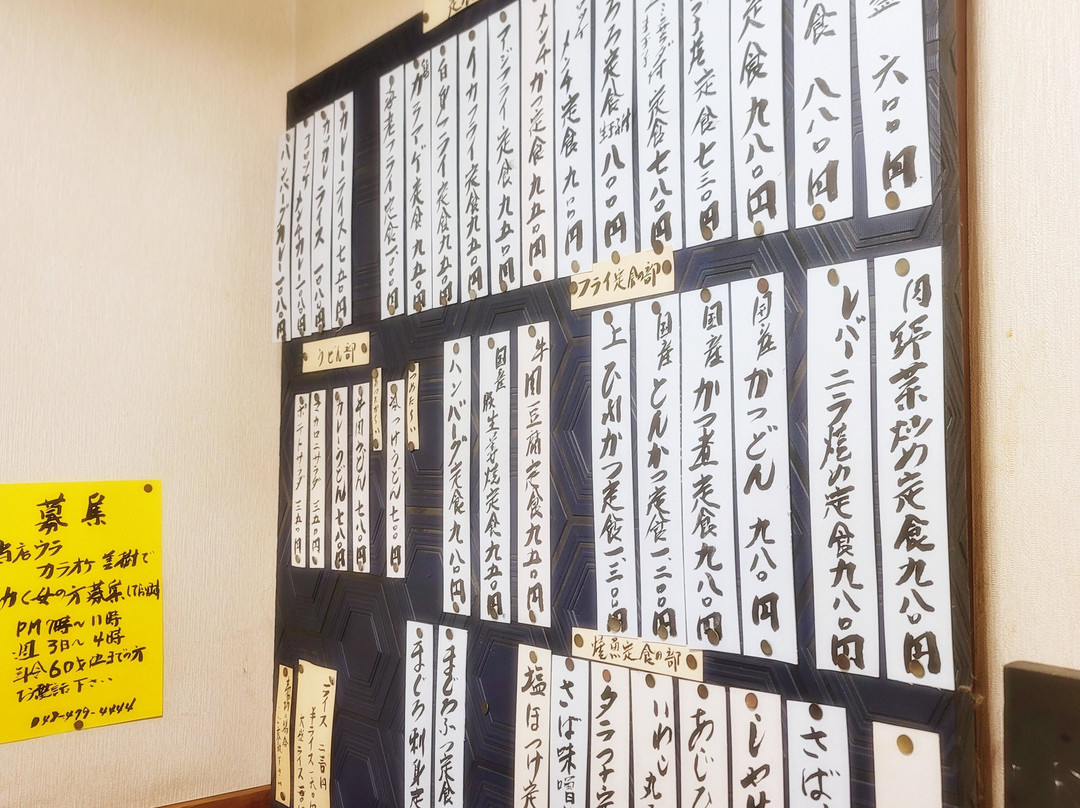 六〇〇円
食 八八〇円
定食 九八〇円
定食 七三〇円
定食 七八〇円
定食 八〇〇円
メンチ定食 九〇〇円
メンチかつ定食 九五〇円
アジフライ定食 九五〇円
イカフライ定食 九五〇円
白身フライ定食 九五〇円
カラアゲ定食 九五〇円
カレーライス 七五〇円
カツカレーライス 一〇八〇円
コロッケメンチカレー 一〇八〇円
ハンバーグカレー 一〇八〇円
フライ定食の部
肉野菜炒め定食 九八〇円
レバーニラ焼め定食 九八〇円
国産かつどん 九八〇円
国産かつ煮定食 九八〇円
国産とんかつ定食 一、二〇〇円
上ひれかつ定食 一、三〇〇円
牛肉豆腐定食 九五〇円
国産豚生姜焼定食 九五〇円
ハンバーグ定食 九八〇円
うどん部
つめた〜い
つけうどん 七〇〇円
肉うどん 七八〇円
カレーうどん 七八〇円
マカロニサラダ 三五〇円
ポテトサラダ 三五〇円
焼魚定食の部
さば
しゃ
あじひ
いわし丸
タラ
さば味噌
塩ほっけ定
まぐろぶつ定食
まぐろ刺身定
ライス 二五〇円
半ライス
大ライス
募集
当店ウラ
カラオケ 美樹で
働く女の方募集しております
PM 7時〜11時
週 3日〜4時
年令60才位までの方
お電話下さい
048-499-4444